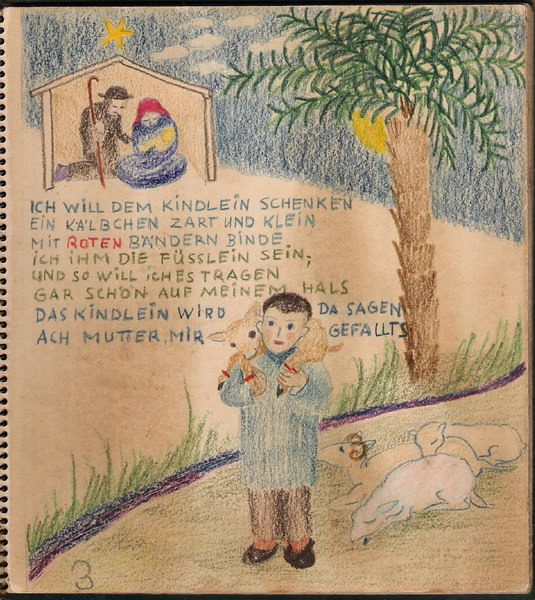 ICH WILL DEM KINDLEIN SCHENKEN
EIN KÄLBCHEN ZART UND KLEIN
MIT ROTEN BÄNDERN BINDE
ICH IHM DIE FÜSSLEIN SEIN;
UND SO WILL ICHES TRAGEN
GAR SCHÖN AUF MEINEM HALS
DAS KINDLEIN WIRD DA SAGEN
ACH MUTTER, MIR GEFALLTS
3